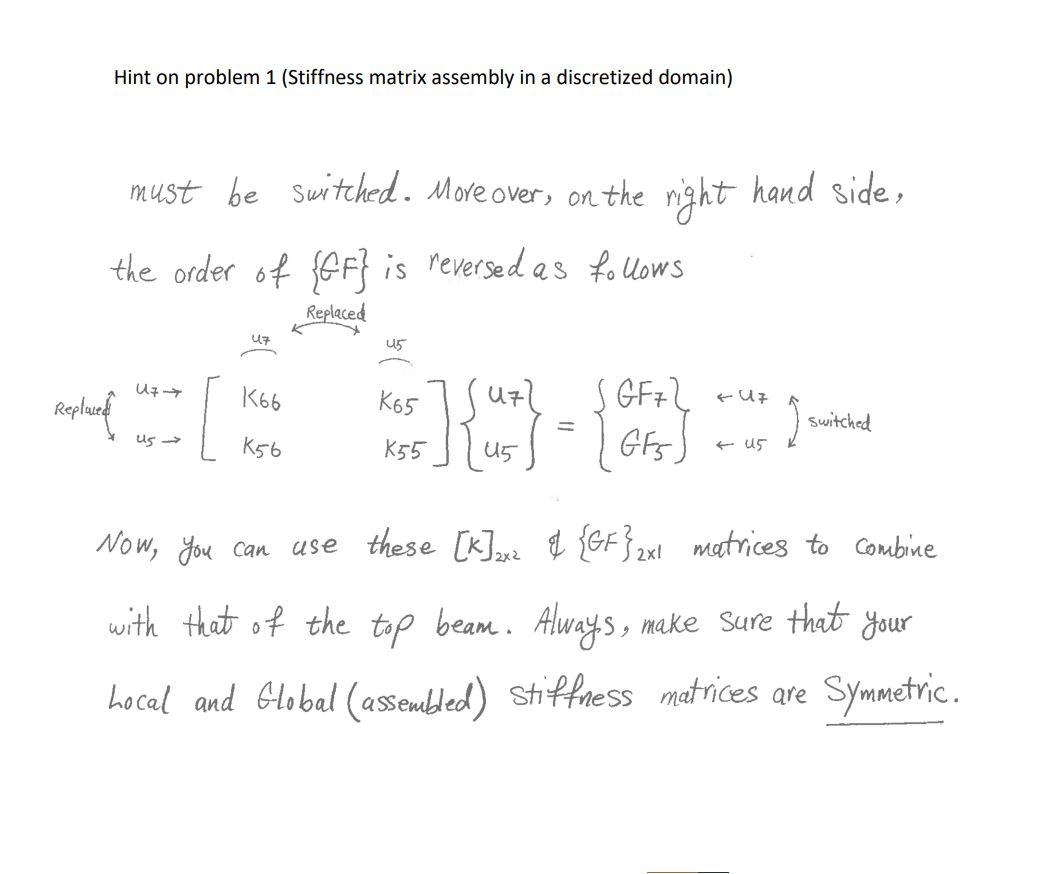 Hint on problem 1 (Stiffness matrix assembly in a discretized domain)
must be switched. Moreover, on the right hand side,
the order of {GF} is reversed as follows
Replaced
u7 u5
Replaced u7 → [ K66 K65 ] { u7 } = { GF7 } ← u7 switched
u5 → [ K56 K55 ] { u5 } { GF5 } ← u5
Now, you can use these [K]2x2 & {GF}2x1 matrices to combine
with that of the top beam. Always, make sure that your
Local and Global (assembled) stiffness matrices are Symmetric.